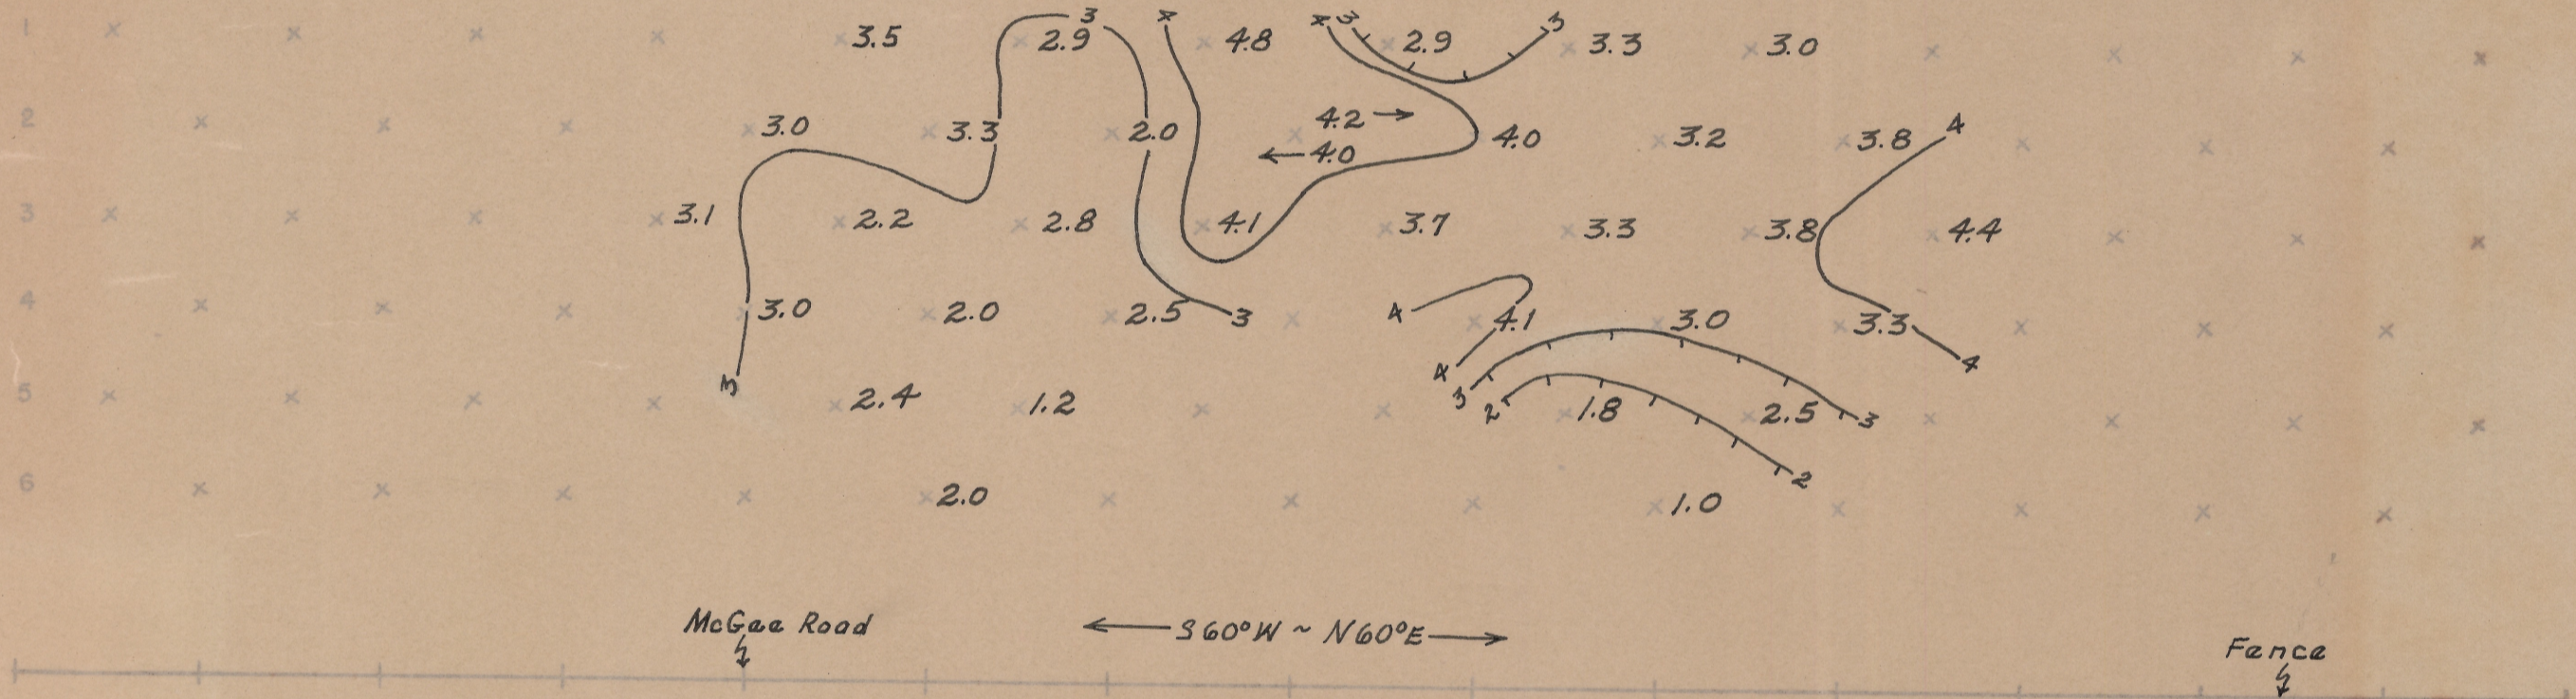 3 3 3
1 3.5 2.9 4.8 2.9 3.3 3.0
2 3.0 3.3 2.0 4.2 → 4.0 3.2 3.8 4
← 4.0
3 3.1 2.2 2.8 4.1 3.7 3.3 3.8 4.4
4 3.0 2.0 2.5 3 4 4.1 3.0 3.3 4
3 4
5 2.4 1.2 3 2 1.8 2.5 3
2
6 2.0 1.0
McGee Road ← S60°W ~ N60°E →
Fence